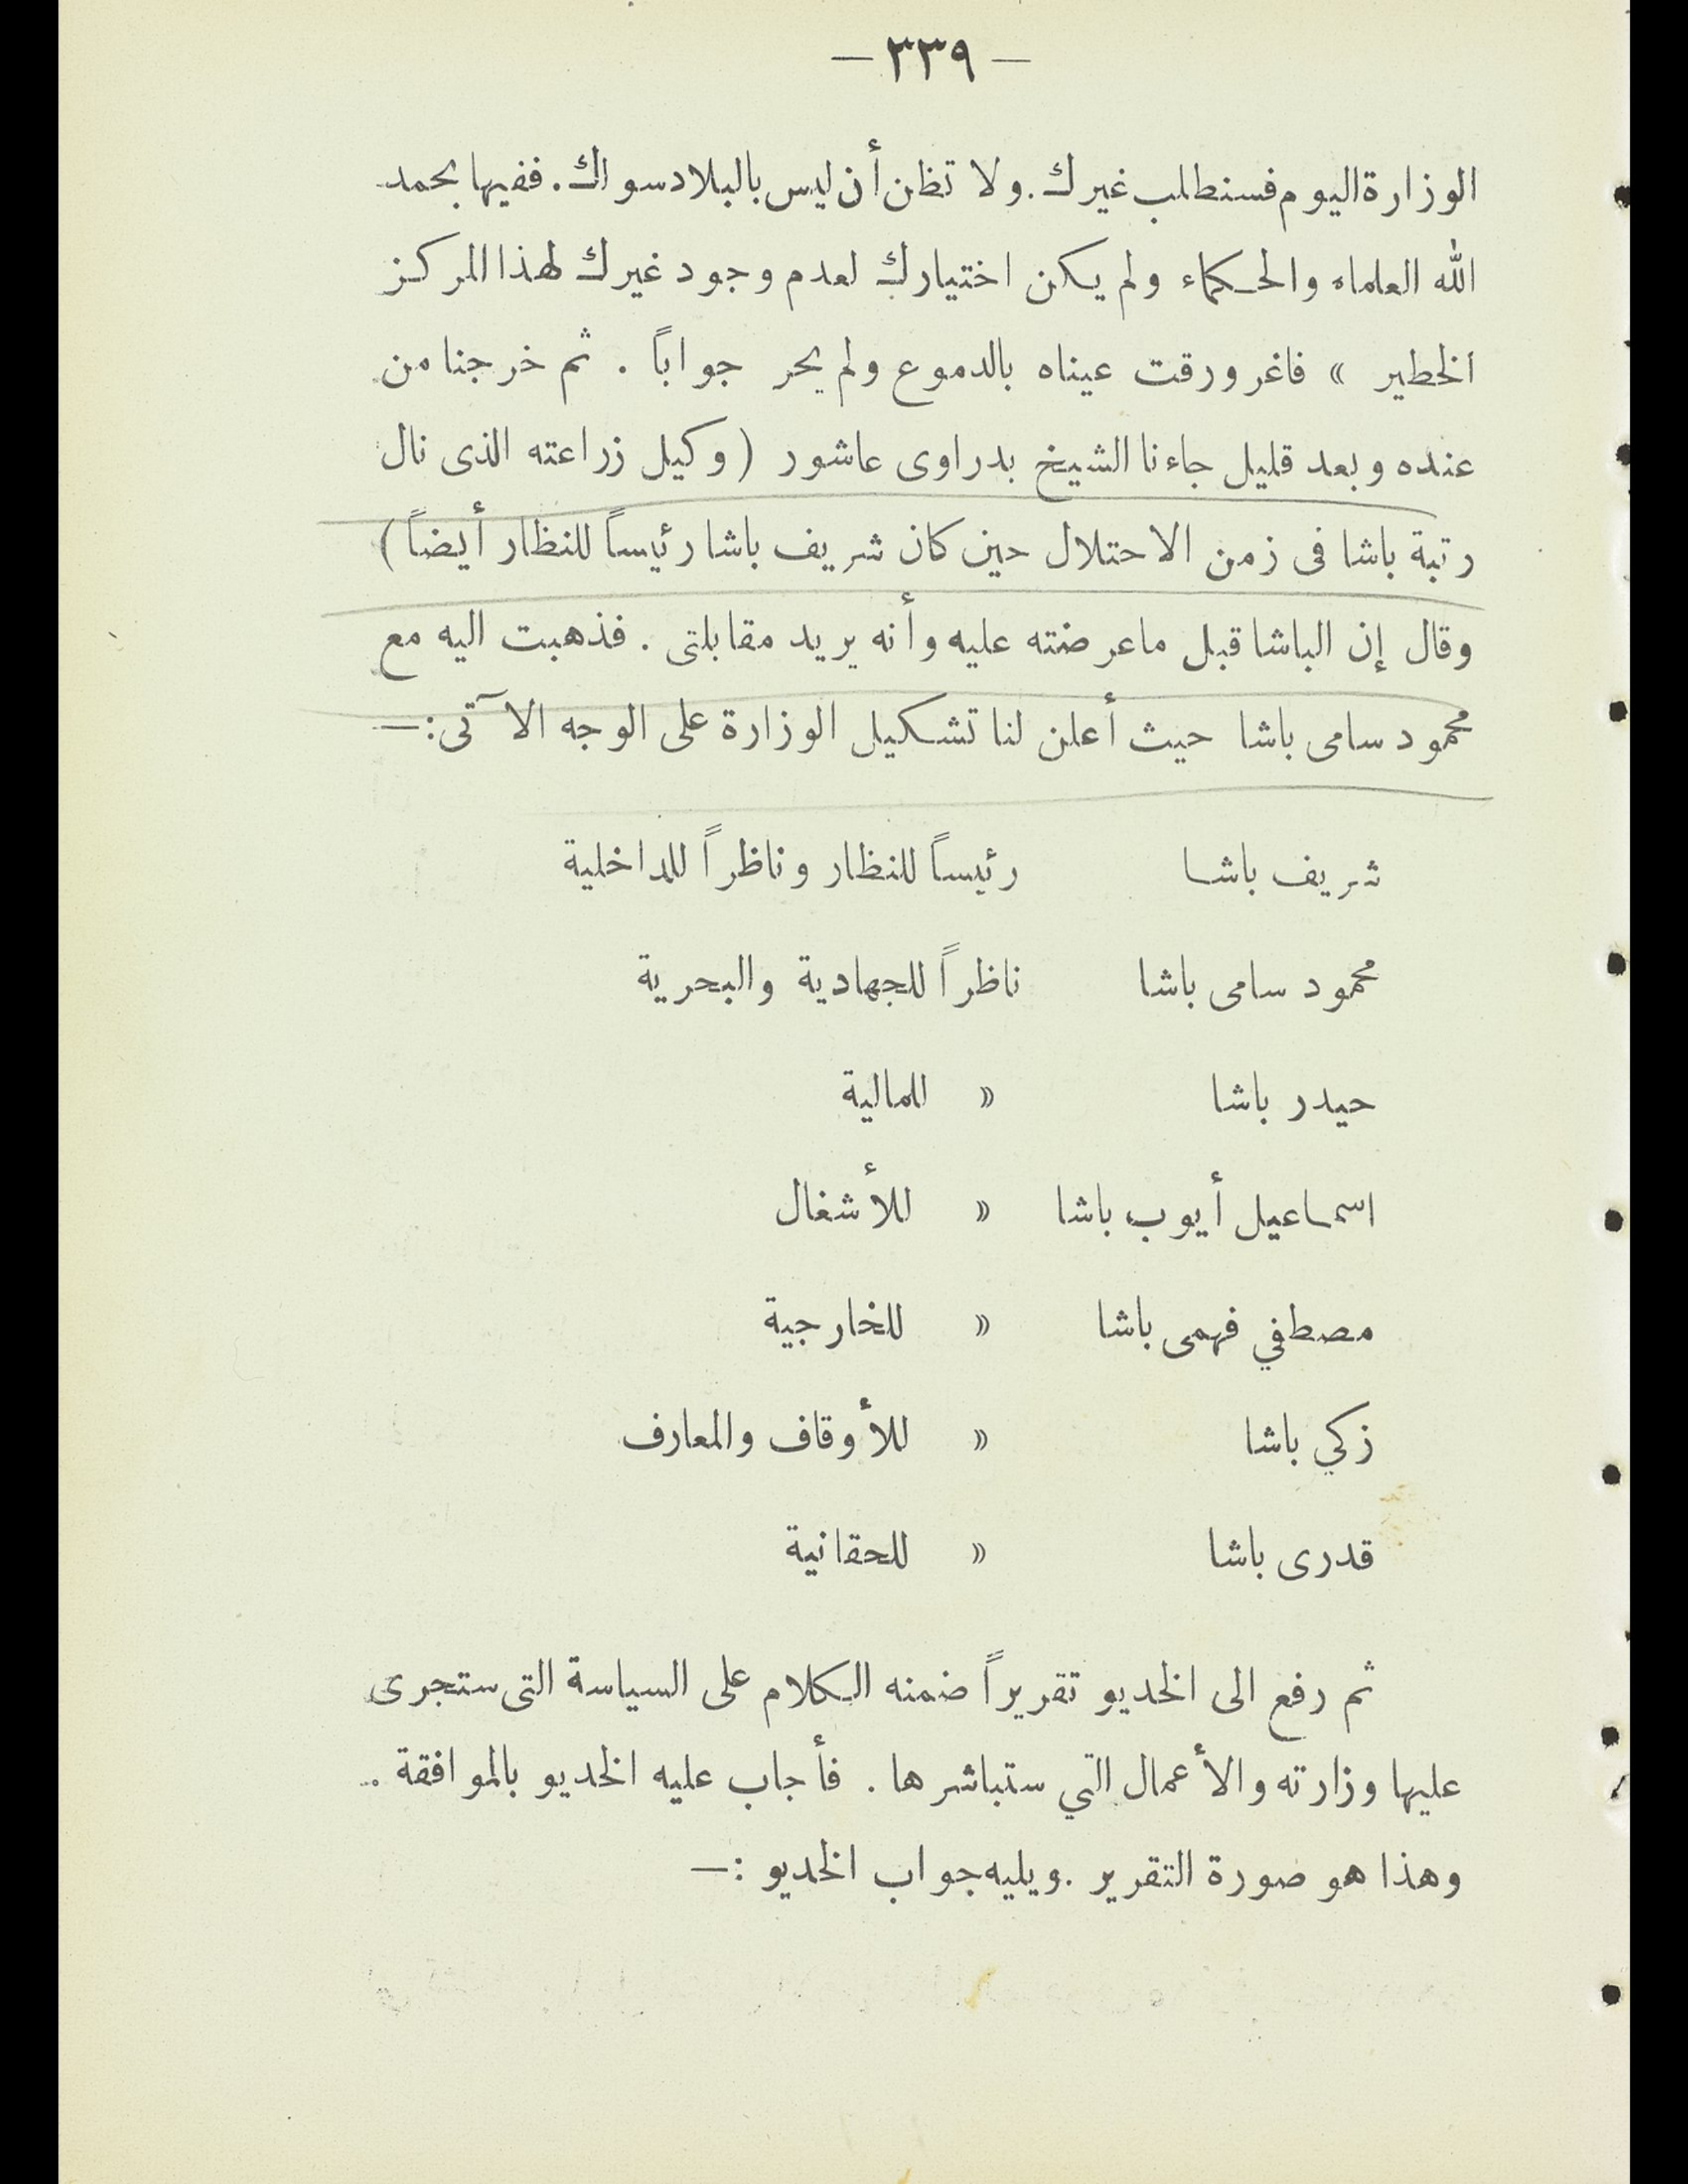 — ٣٣٩ —
الوزارة اليوم فسنطلب غيرك. ولا تظن أن ليس بالبلاد سواك. ففيها بحمد
الله العلماء والحكماء ولم يكن اختيارك لعدم وجود غيرك لهذا المركز
الخطير » فاغرورقت عيناه بالدموع ولم يحر جواباً . ثم خرجنا من
عنده وبعد قليل جاءنا الشيخ بدراوى عاشور (وكيل زراعته الذى نال
رتبة باشا فى زمن الاحتلال حين كان شريف باشا رئيساً للنظار أيضاً)
وقال إن الباشا قبل ماعرضته عليه وأنه يريد مقابلتى . فذهبت اليه مع
محمود سامى باشا حيث أعلن لنا تشكيل الوزارة على الوجه الآتى :—
شريف باشا رئيساً للنظار وناظراً للداخلية
محمود سامى باشا ناظراً للجهادية والبحرية
حيدر باشا » للمالية
اسماعيل أيوب باشا » للأشغال
مصطفي فهمى باشا » للخارجية
زكي باشا » للأوقاف والمعارف
قدرى باشا » للحقانية
ثم رفع الى الخديو تقريراً ضمنه الكلام على السياسة التى ستجرى
عليها وزارته والأعمال التي ستباشرها . فأجاب عليه الخديو بالموافقة .
وهذا هو صورة التقرير . ويليه جواب الخديو :—